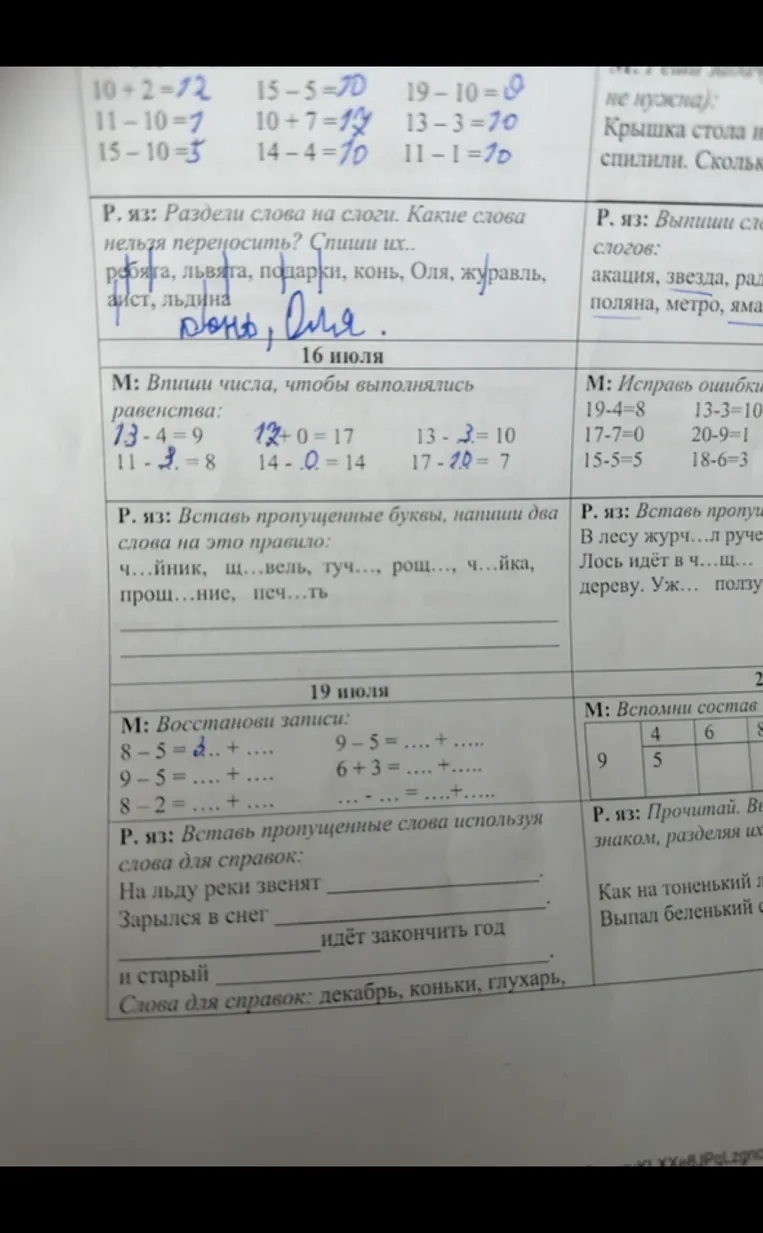 10 + 2 = 12 15 – 5 = 10 19 – 10 = 9
не нужна):
11 – 10 = 1 10 + 7 = 17 13 – 3 = 10
Крышка стола
15 – 10 = 5 14 – 4 = 10 11 – 1 = 10
спилили.
Р. яз: Раздели слова на слоги. Какие слова
нельзя переносить? Спиши их..
ребята, львята, подарки, конь, Оля, журавль,
аист, льдина
конь, Оля.
Р. яз: Выпиши
слогов:
акация, звезда,
поляна, метро,
16 июля
М: Впиши числа, чтобы выполнялись
равенства:
13 - 4 = 9 17 + 0 = 17 13 - 3. = 10
11 - 3. = 8 14 - .0. = 14 17 - 10 = 7
М: Исправь ошибки
19-4=8 13-3=10
17-7=0 20-9=1
15-5=5 18-6=3
Р. яз: Вставь пропущенные буквы, напиши два
слова на это правило:
ч…йник, щ…вель, туч…, рощ…, ч…йка,
прощ…ние, печ…ть
Р. яз: Вставь
В лесу журч…л
Лось идёт в ч…щ…
дереву. Уж…
19 июля
М: Восстанови записи:
8 – 5 = 2.. + .... 9 – 5 = .... + .....
9 – 5 = .... + .... 6 + 3 = .... +.....
8 – 2 = .... + .... ... - ... = ....+.....
М: Вспомни состав
4 6
9 5
Р. яз: Вставь пропущенные слова используя
слова для справок:
На льду реки звенят ____________.
Зарылся в снег ____________.
____________ идёт закончить год
и старый ____________.
Слова для справок: декабрь, коньки, глухарь,
Р. яз: Прочитай.
знаком, разделяя
Как на тоненький
Выпал беленький